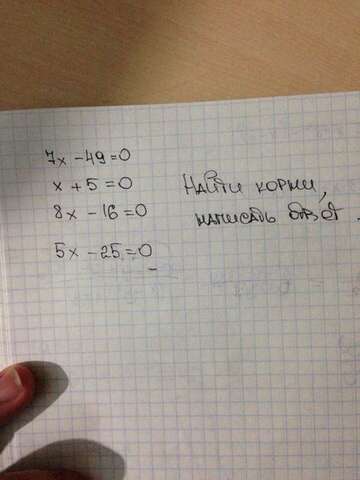 7x - 49 = 0
x + 5 = 0
8x - 16 = 0
5x - 25 = 0
Найти корни,
написать отвёт.